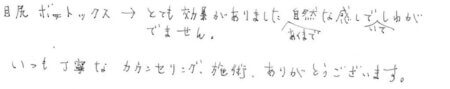 目尻 ボトックス → とても効果がありました 自然な感じでしわが
あくまで いて
でません。
いつも丁寧なカウンセリング、施術、ありがとうございます。